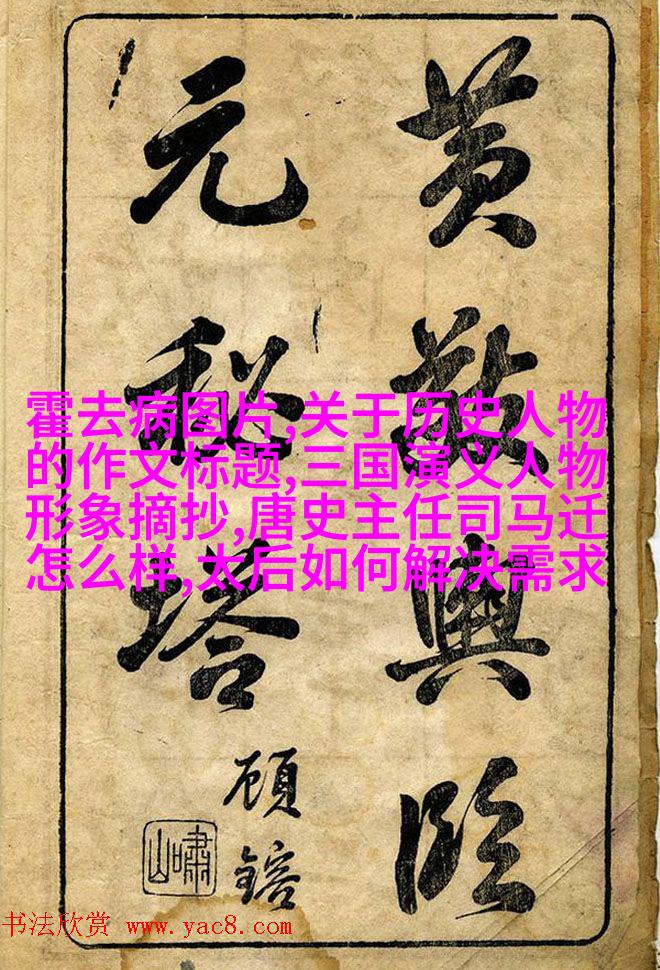 黃敬輿臨
元秘塔
顧鎔
嘯山
霍去病图片,关于历史人物
的作文标题,三国演义人物
形象摘抄,唐史主任司马迁
怎么样,太后如何解决需求
书法欣赏 www.yac8.com